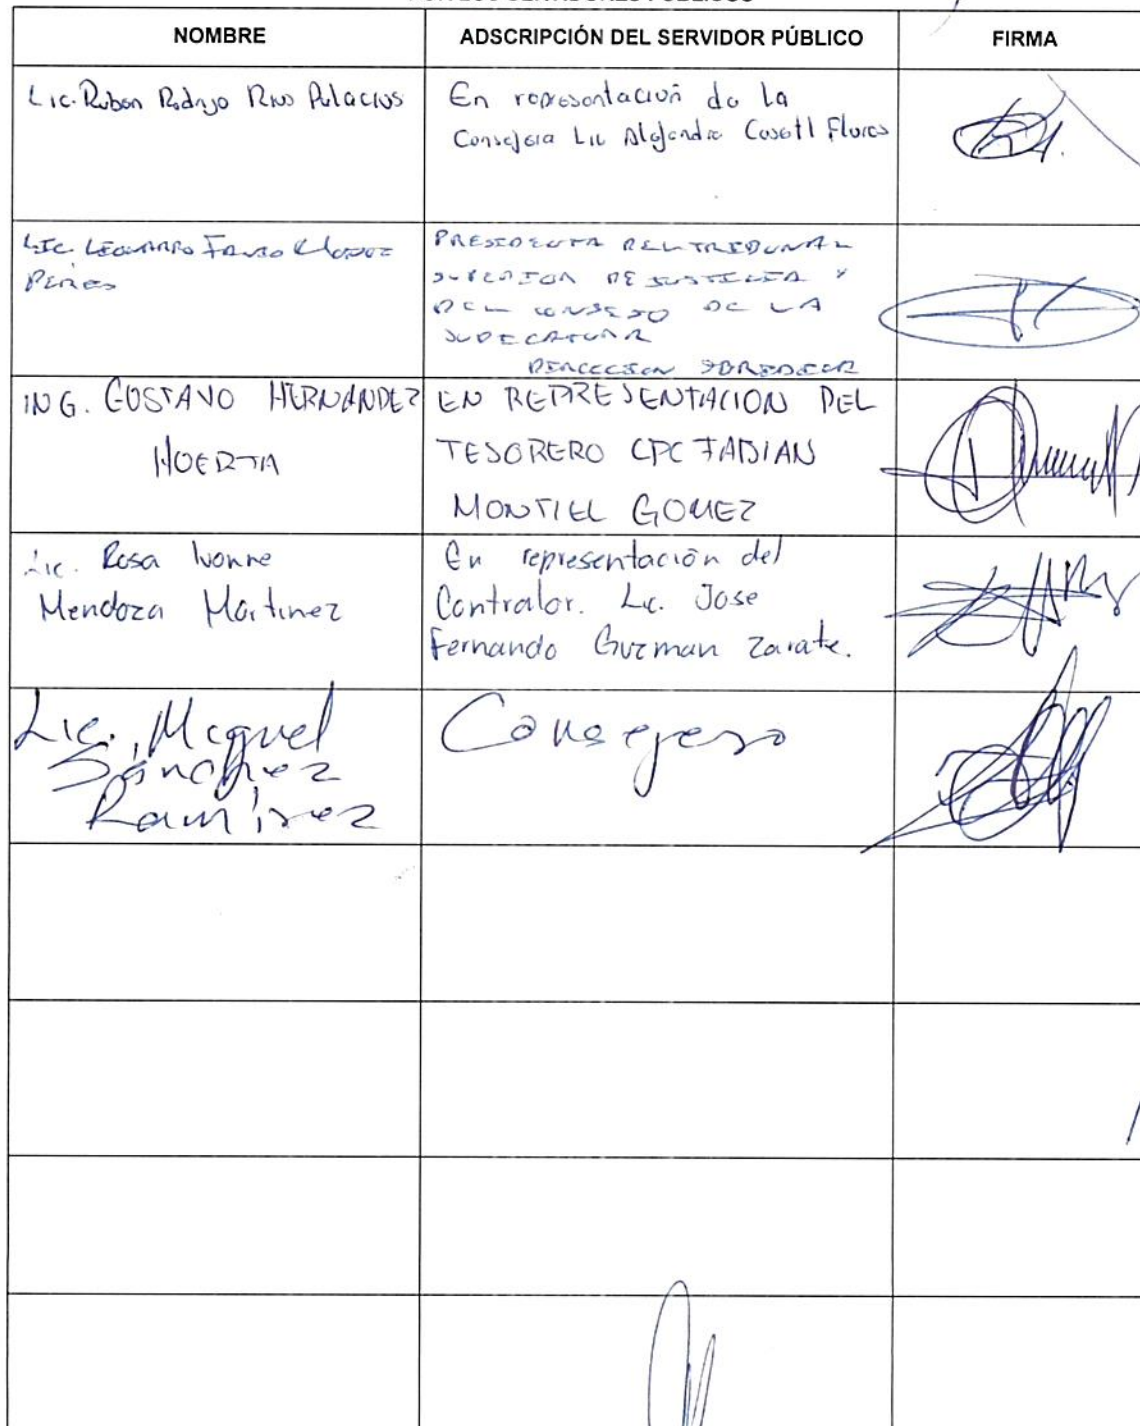 NOMBRE ADSCRIPCIÓN DEL SERVIDOR PÚBLICO FIRMA
Lic. Ruben Rodrigo Rios Palacios
En representación de la
Consejera Lic Alejandra Cosetl Flores
LIC. LEONARDO FAVIO
PRESIDENTA DEL TRIBUNAL
SUPERIOR DE JUSTICIA Y
DEL CONSEJO DE LA
JUDICATURA
DIRECCION JURIDICA
ING. GUSTAVO HERNANDEZ
HUERTA
EN REPRESENTACION DEL
TESORERO CPC FABIAN
MONTIEL GOMEZ
Lic. Rosa Ivonne
Mendoza Martinez
En representación del
Contralor. Lic. Jose
Fernando Guzman Zarate.
Lic. Miguel
Sánchez
Ramírez
Consejero